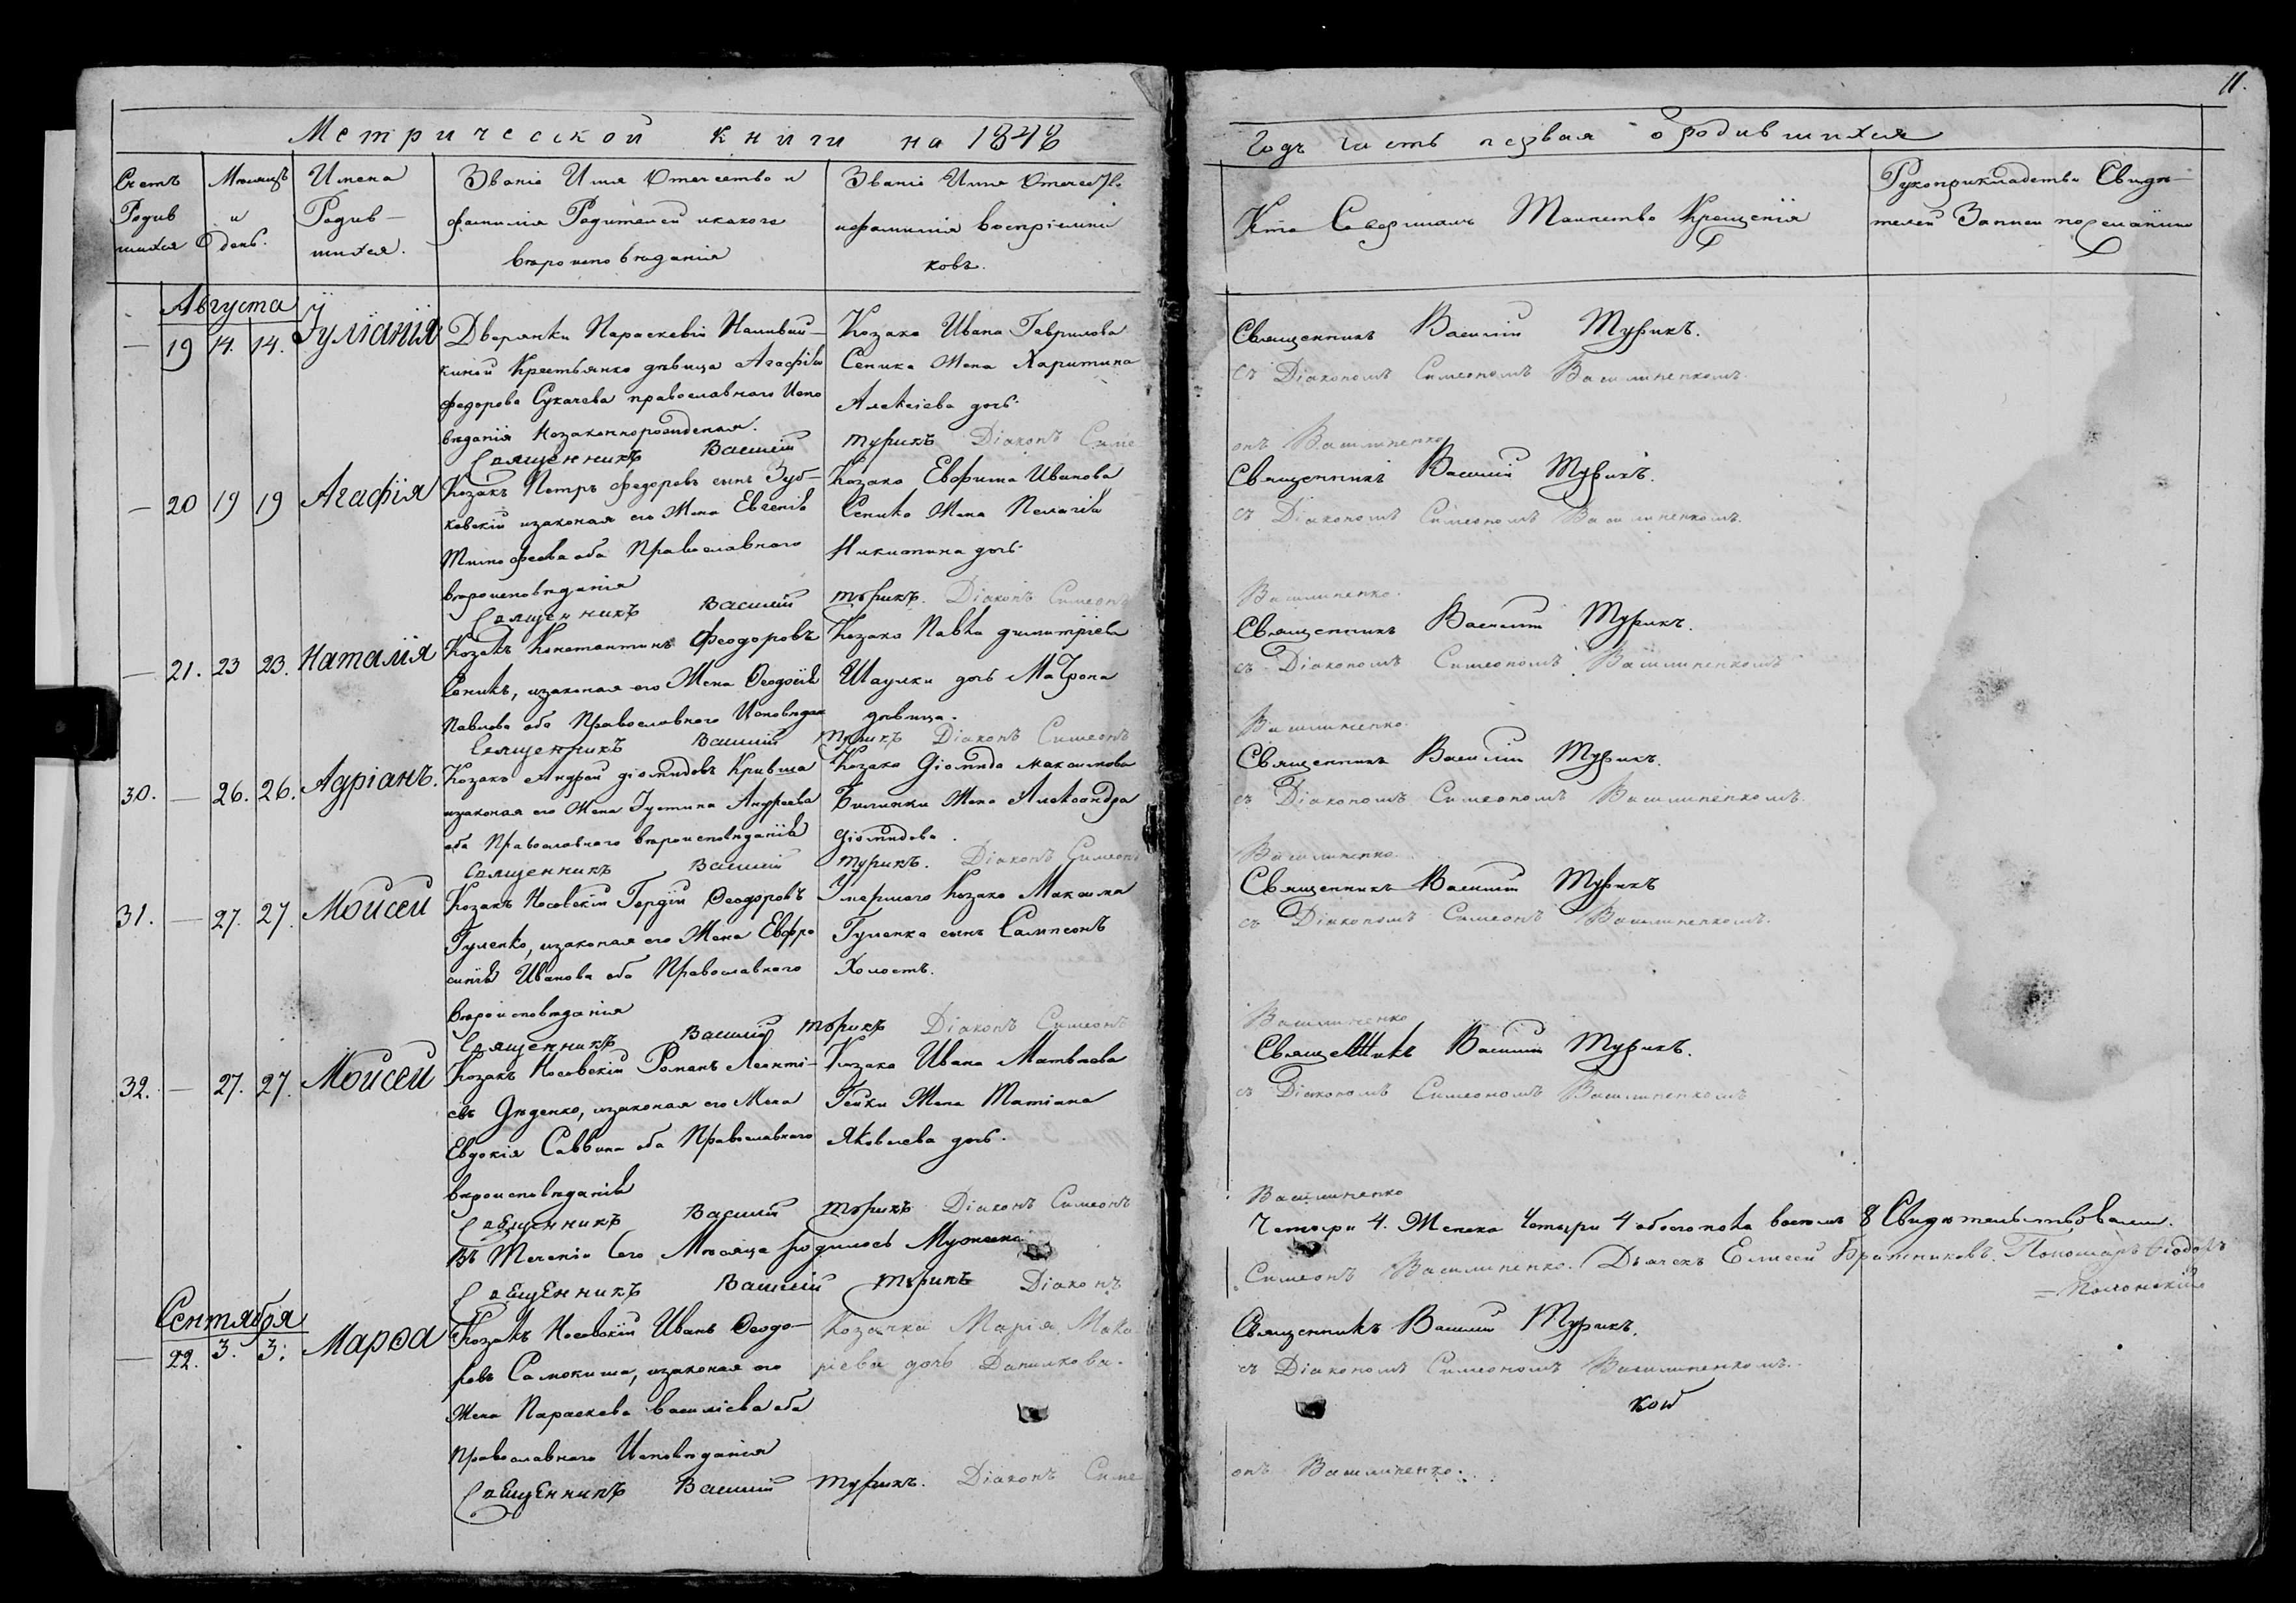 11.
Метрической книги на 1848
Годъ часть первая о родившихся
Счетъ Родив шихся
Мѣсяцъ и день.
Имена Родив— шихся.
Званіе Имя Отечество и
фамилія Родителей икакого
вѣроисповѣданія
Званіе Имя Отечество
ифамилія воспріемни
ковъ.
Кто Совершалъ Таинство Крещенія
Рукоприкладство Свидѣ—
телей Записи по желанію
Августа
— 19 14. 14. Іуліанія
Дворянки Параскевіи
киной Крестьянка дѣвица Агафія
федорова Сукачева православнаго Испо
вѣданія Незаконнорожденая.
Козака Ивана Гаврилова
Сеника Жена Харитина
Алексіева дочь
Священникъ Василій Турикъ.
съ Діакономъ Симеономъ Василиненкомъ.
Священникъ Василій Турикъ Діаконъ Симе
онъ Василиненко
— 20 19 19 Агафія
Козакъ Петръ федоровъ сынъ Зуб—
ковскій изаконая его Жена Евгенія
Тимофеева оба Православнаго
вѣроисповѣданія
Козака Евфима Иванова
Сенико Жена Пелагія
Никитина дочь
Священникъ Василій Турикъ.
съ Діакономъ Симеономъ Василиненкомъ.
Священникъ Василій Турикъ. Діаконъ Симеонъ
Василиненко.
— 21. 23 23. Наталія
Козакъ Константинъ Феодоровъ
Сеникъ, изаконая его Жена Феодосія
Павлова оба Православнаго Исповѣдан
Козака Павла димитріева
Шаулки дочь Матрона
дѣвица.
Священникъ Василій Турикъ.
съ Діакономъ Симеономъ Василиненкомъ
Священникъ Василій Турикъ Діаконъ Симеонъ
Василиненко.
30. — 26. 26. Адріанъ.
Козакъ Андрей діомидовъ Кривша
изаконая его Жена Іустина Андреева
оба Православнаго вѣроисповѣданія
Козака Діомида максимова
Билинки Жена Александра
Діомидова.
Священникъ Василій Турикъ.
съ Діакономъ Симеономъ Василиненкомъ.
Священникъ Василій Турикъ. Діаконъ Симеонъ
Василиненко.
31. — 27. 27. Моисей
Козакъ Носовскій Гордій Феодоровъ
Гуленко, изаконая его Жена Евфро
синія Иванова оба Православнаго
Вѣроисповѣданія
Умершаго Козака Максима
Гуленка сынъ Сампсонъ
Холостъ.
Священникъ Василій Турикъ
съ Діакономъ Симеонъ Василиненкомъ.
Священникъ Василій Турикъ Діаконъ Симеонъ
Василиненко
32. — 27. 27. Моисей
Козакъ Носовскій Романъ Леонті—
евъ Дѣденко, изаконая его Жена
Евдокія Саввина оба Православнаго
вѣроисповѣданія
Козака Ивана Матвѣева
Гейки Жена Татіана
Яковлева дочь.
Священникъ Василій Турикъ.
съ Діакономъ Симеономъ Василиненкомъ
Священникъ Василій Турикъ Діаконъ Симеонъ
Василиненко
Въ Теченіи Сего Мѣсяца родилось Мужеска
Четыри 4. Женска Четыри 4 обоего пола восемь 8 Свидѣтельствовали.
Священникъ Василій Турикъ Діаконъ
Симеонъ Василиненко. Дьячекъ Елисей Братниковъ. Пономарь Феодоръ
= Полонскій
Сентября
— 22. 3. 3. Марѳа
Козакъ Носовскій Иванъ Феодо—
ровъ Самокиша, изаконая его
Жена Параскева василіева оба
Православнаго Исповѣданія
Козачка Марія Мака
ріева дочь Данилкова.
Священникъ Василій Турикъ.
съ Діакономъ Симеономъ Василиненкомъ.
Священникъ Василій Турикъ. Діаконъ Симе
онъ Василиненко.